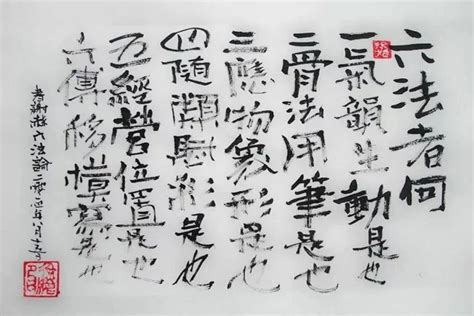 六法者何
一氣韻生動是也
二骨法用筆是也
三應物象形是也
四隨類賦彩是也
五經營位置是也
六傳移模寫是也
謝赫六法論